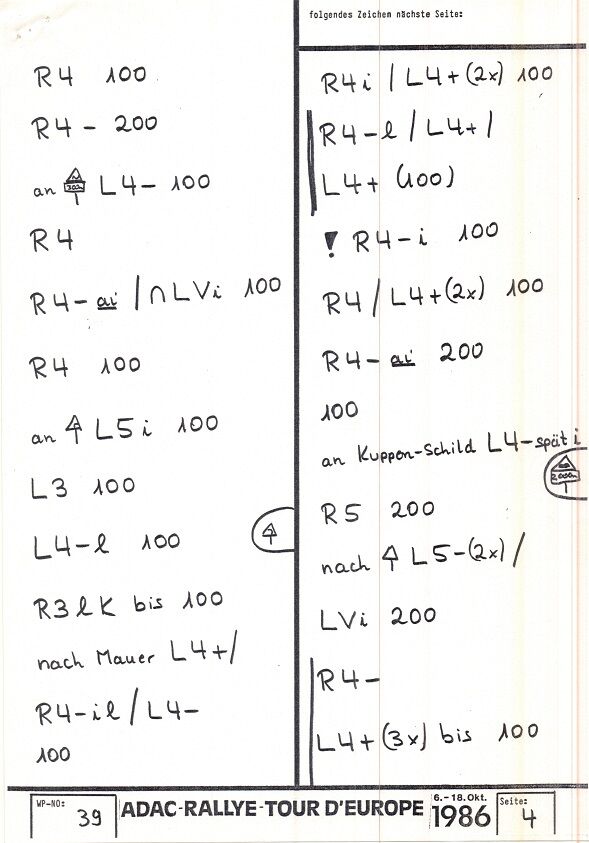 folgendes Zeichen nächste Seite:
R4 100
R4- 200
an 300m L4- 100
R4
R4- ai / ∩ LVi 100
R4 100
an L5i 100
L3 100
L4-l 100
R3lK bis 100
nach Mauer L4+/
R4-il / L4-
100
R4i / L4+(2x) 100
R4-l / L4+ /
L4+ (100)
! R4-i 100
R4 / L4+(2x) 100
R4- ai 200
100
an Kuppen-Schild L4-spät i
2000m
R5 200
nach L5-(2x) /
LVi 200
R4-
L4+ (3x) bis 100
WP-NO: 39
ADAC-RALLYE-TOUR D'EUROPE
6.-18. Okt. 1986
Seite: 4